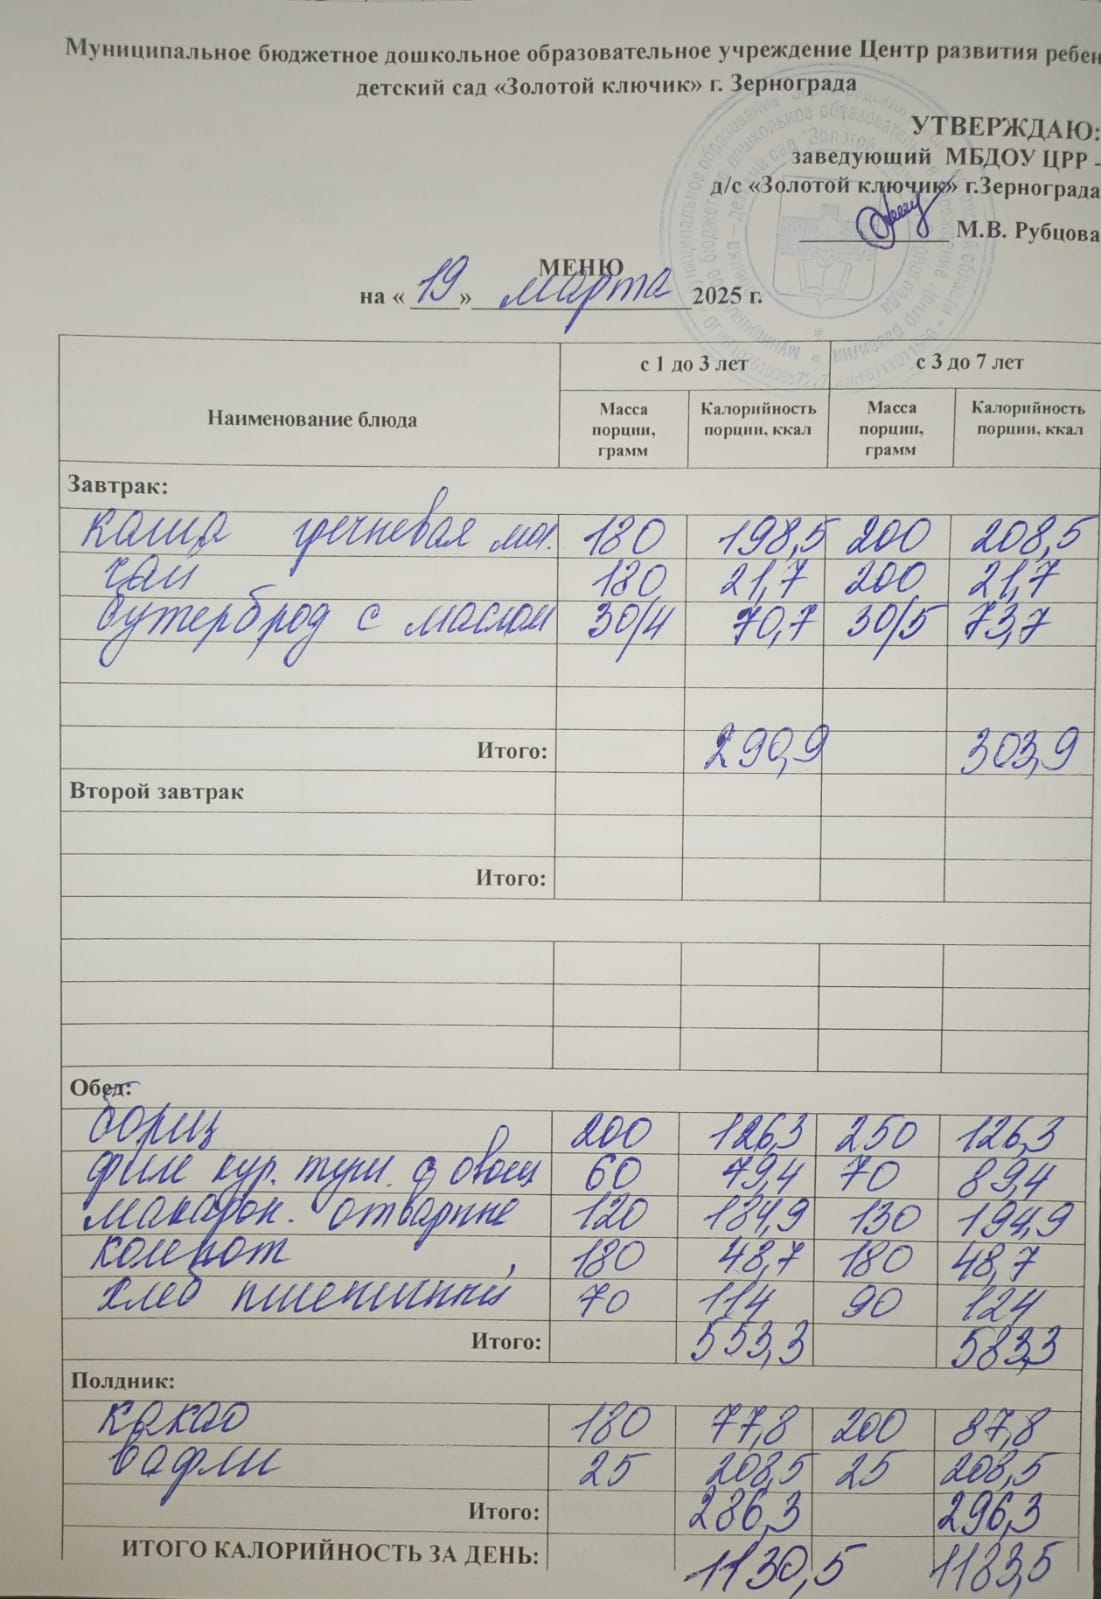 Муниципальное бюджетное дошкольное образовательное учреждение Центр развития ребен
детский сад «Золотой ключик» г. Зернограда
УТВЕРЖДАЮ:
заведующий МБДОУ ЦРР -
д/с «Золотой ключик» г.Зернограда
М.В. Рубцова
МЕНЮ
на « 19 » марта 2025 г.
Наименование блюда
с 1 до 3 лет с 3 до 7 лет
Масса порции, грамм Калорийность порции, ккал Масса порции, грамм Калорийность порции, ккал
Завтрак:
каша гречневая мол. 180 198,5 200 208,5
чай 180 21,7 200 21,7
бутерброд с маслом 30/4 70,7 30/5 73,7
Итого: 290,9 303,9
Второй завтрак
Итого:
Обед:
борщ 200 126,3 250 126,3
филе кур. туш. с овощ 60 79,4 70 89,4
макарон. отварные 120 184,9 130 194,9
компот 180 48,7 180 48,7
хлеб пшеничный 70 114 90 124
Итого: 553,3 583,3
Полдник:
какао 180 77,8 200 87,8
вафли 25 208,5 25 208,5
Итого: 286,3 296,3
ИТОГО КАЛОРИЙНОСТЬ ЗА ДЕНЬ: 1130,5 1183,5